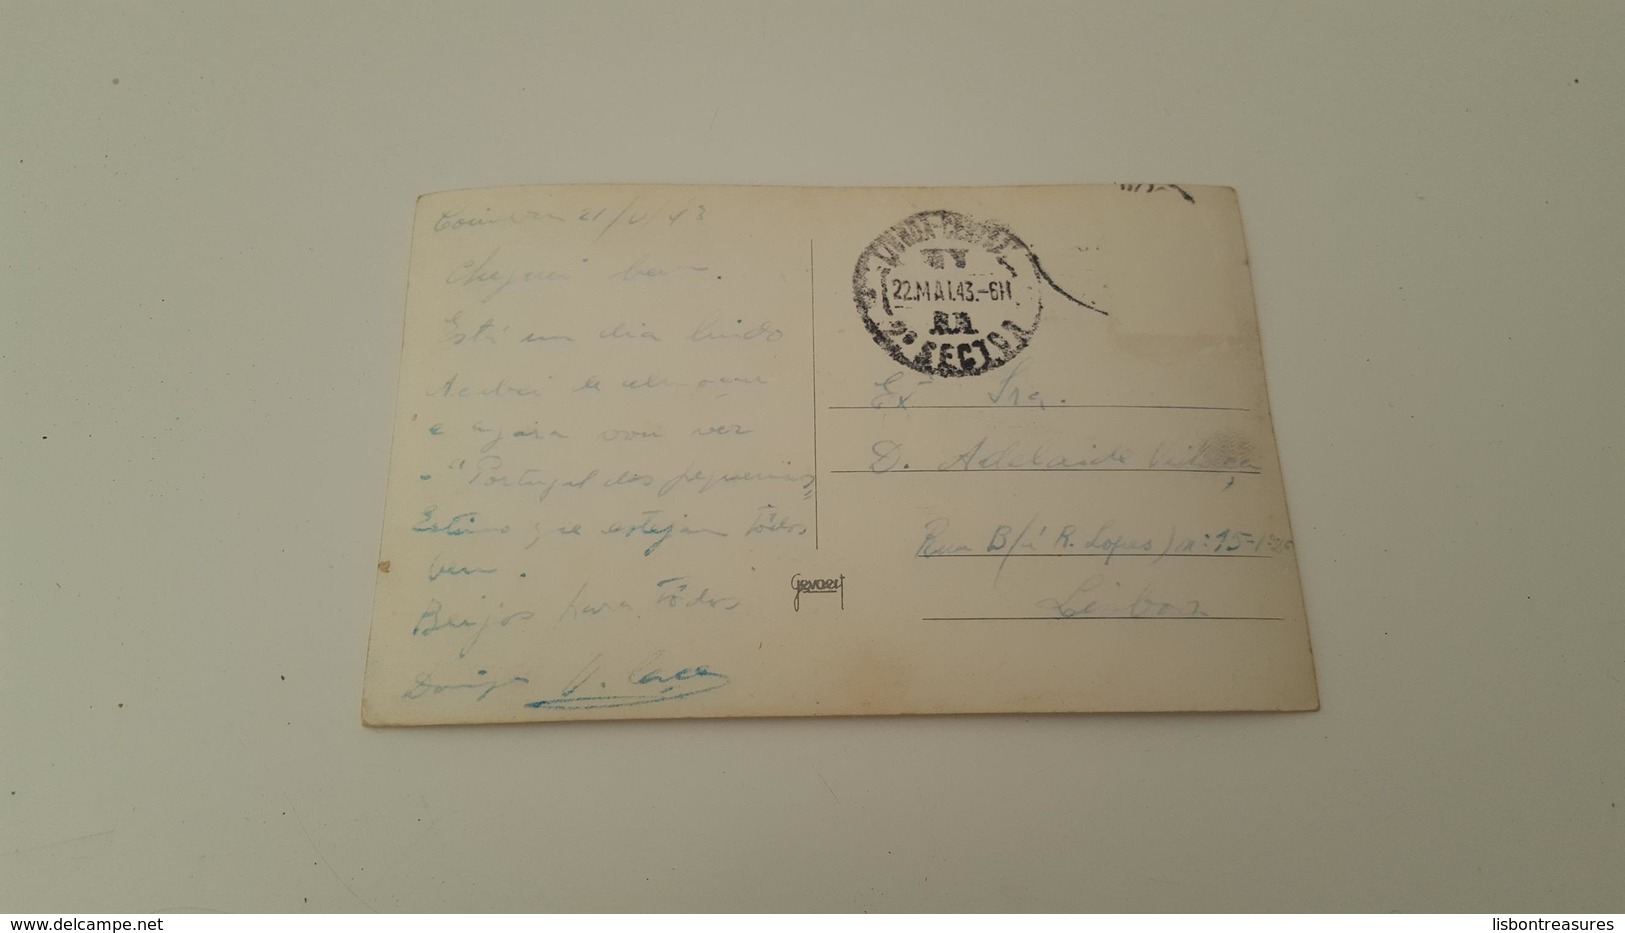 Coimbra 21/V/43
Cheguei bem.
Está um dia lindo
Acabei de almoçar
e agora vou ver
o "Portugal dos pequeninos"
Estimo que estejam todos
bem.
Beijos para todos
LISBOA-CENTRAL
22.MAI.43.-6H
2ª SECTOR
Exª Sra.
D. Adelaide Vilaça
Rua B (á R. Lopes) nº 15-1º
Lisboa
Gevaert
delcampe.net
lisbontreasures